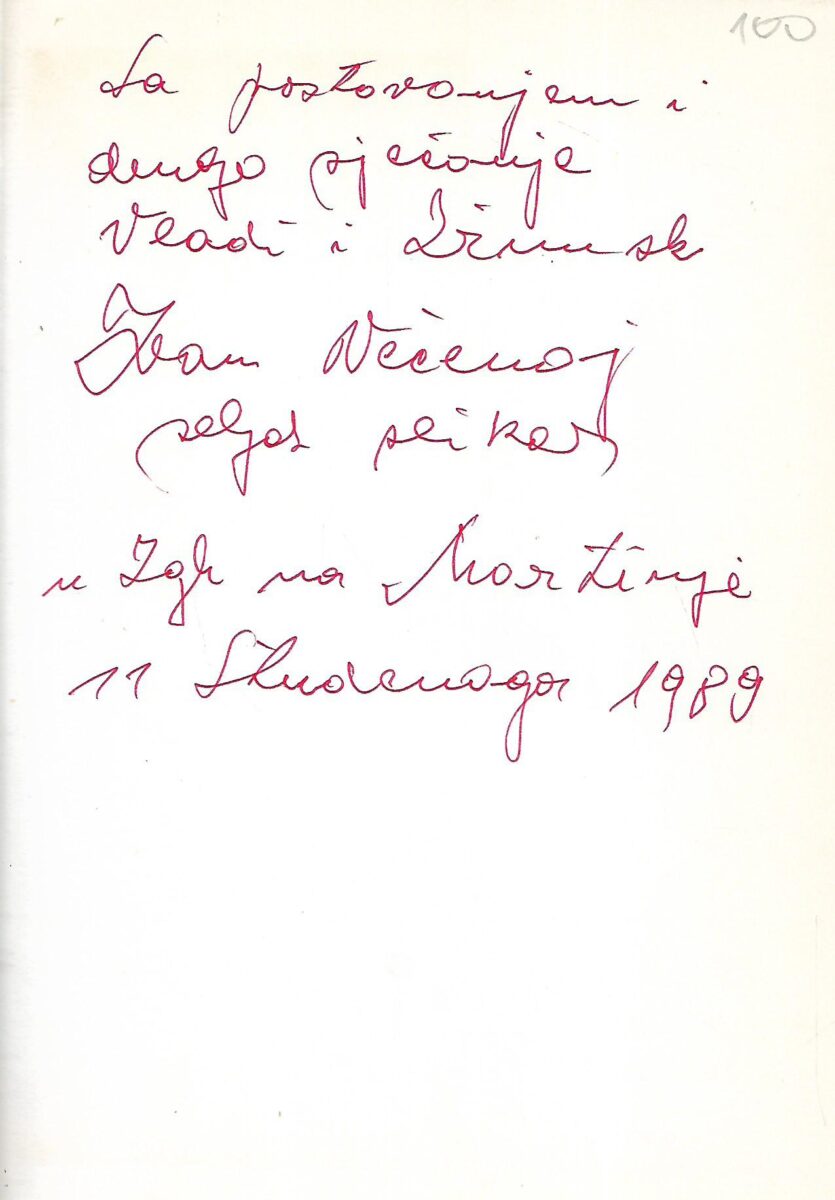 100
Sa postovanjem i
drugo sječanje
Vladi i
Ivan Večenaj
seljak slikar
u Zgb na Martinje
11 Studenoga 1989